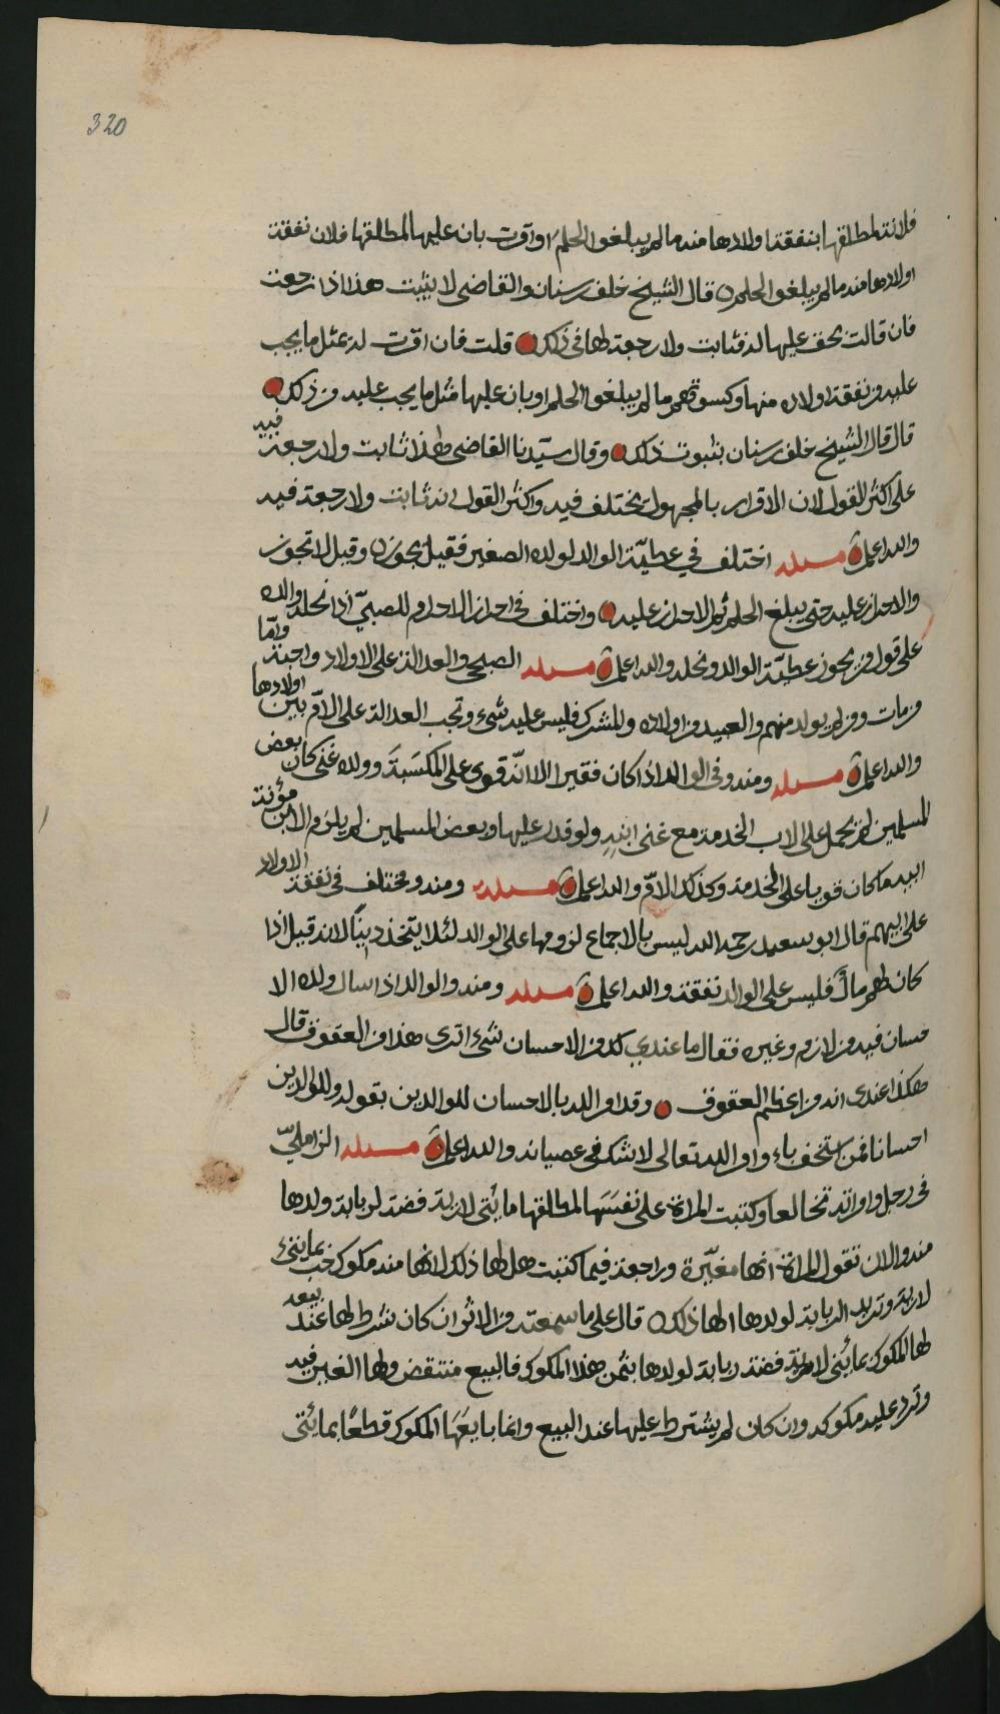 320
فلانة لمطلقها بنفقة اولادها منه ما لم يبلغوا الحلم او اقرت بان عليها لمطلقها فلان نفقة
اولادها منه ما لم يبلغوا الحلم قال الشيخ خلف بن سنان والقاضي لا يثبت هذا اذا رجعت
فان قالت بحق عليها له فثابت ولا رجعة لها في ذلك قلت فان اقرت له بمثل ما يجب
عليه من نفقة اولاده منها وكسوتهم ما لم يبلغوا الحلم او بان عليها مثل ما يجب عليه من ذلك
قال قال الشيخ خلف بن سنان بثبوت ذلك وقال سيدنا القاضي هذا ثابت ولا رجعة فيه
على اكثر القول لان الاقرار بالمجهول يختلف فيه واكثر القول انه ثابت ولا رجعة فيه
والله اعلم مسئلة اختلف في عطيّة الوالد لولده الصغير فقيل يجوز وقيل لا تجوز
والاحراز عليه حتى يبلغ الحلم ثم الاحراز عليه واختلف في احراز الارحام للصبيّ اذا نحله والده
على قول من يجوز عطيّة الوالد ونحله والله اعلم مسئلة الصلح والعدالة على الاولاد واجبة وامّا
من مات ومن لم يولد منهم والعبيد من اولاده والمشرك فليس عليه شيء وتجب العدالة على الامّ بين اولادها
والله اعلم مسئلة ومنه وفي الوالد اذا كان فقيرا الا انّه قوي على المكسَبَة وولده غني كان بعض
المسلمين لم يحمل على الاب الخدمة مع غنى ابنهِ ولو قدر عليها وبعض المسلمين لم يلزم الابن مؤنة
ابيه ما كان قويا على الخدمة وكذلك الامّ والله اعلم مسئلة ومنه ومختلف في نفقة الاولاد
على ابيهم قال ابو سعيد رحمه الله ليس بالاجماع لزومها على الوالد لئلا يتخذ دينًا لانه قيل اذا
كان لهم مالٌ فليس على الوالد نفقة والله اعلم مسئلة ومنه والوالد اذا سال ولده الا
حسان فيه من لازم وغيره فقال ما عندي لك من الاحسان شيء اترى هذا من العقوق قال
هكذا عندي انه من اعظم العقوق وقد امر الله بالاحسان للوالدين بقوله وللوالدين
احسانا فمن استخف باء وامر الله تعالى لا شك في عصيانه والله اعلم مسئلة الزامليّ
في رجل وامراته تخالعا وكتبت المراة على نفسَها لمطلقها مائتي لارية فضة لربابة ولدها
منه والان تقول المراة انها مغيّرة وراجعة فيما كتبت هل لها ذلك لانها منه مكوك حب بمائتي
لارية وتريد الربابة لولدها الها ذلك قال على ما سمعته من الاثر ان كان شرط لها عند بيعه
لها المكوك بمائتي لارية فضة ربابة لولدها بثمن هذا المكوك فالبيع منتقض ولها الغير فيه
وترد عليه مكوكه وان كان لم يشترط عليها عند البيع وانما بايعَهَا المكوك قطعًا بمائتي